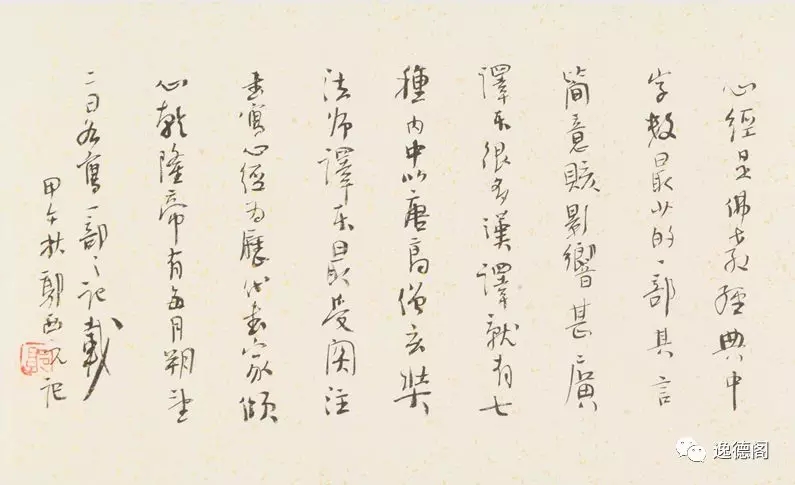 心經是佛教經典中
字數最少的一部其言
簡意賅影響甚廣
譯本很多漢譯就有七
種內中以唐高僧玄奘
法师譯本最受関注
書寫心經為歷代書家傾
心乾隆帝有每月朔望
二日各寫一部之记載
甲午秋记
逸德阁